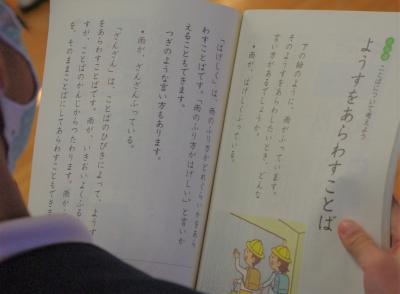 ことばについて考えよう
ようすをあらわすことば
アの絵のように、雨がふっています。
そのようすをあらわしたいとき、どんな
言い方があるでしょうか。
・雨が、はげしくふっている。
「はげしく」は、雨のふり方がどれぐらいかをあら
わすことばです。「雨のふり方がはげしい」と言いか
えることもできます。
つぎのような言い方もあります。
・雨が、ざんざんふっている。
「ざんざん」は、ことばのひびきによって、ようす
をあらわすことばです。雨が、いきおいよくふる
すが、ことばのかんじからつたわります。雨が
を、そのままことばにしてあらわすこともでき